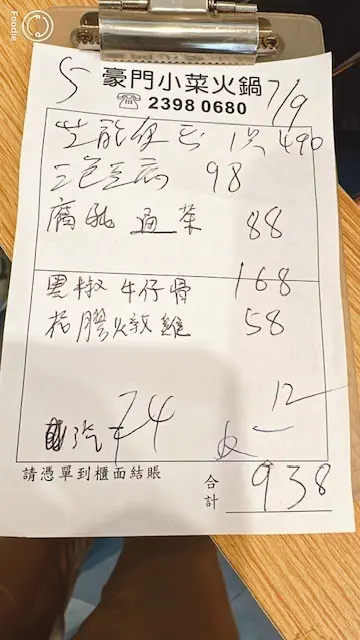 Foodie
5 豪門小菜火鍋
☎ 2398 0680 7/9
1只 490
三色豆腐 98
腐乳通菜 88
黑椒牛仔骨 168
花膠燉雞 58
12
汽 74
請憑單到櫃面結賬 合計 938